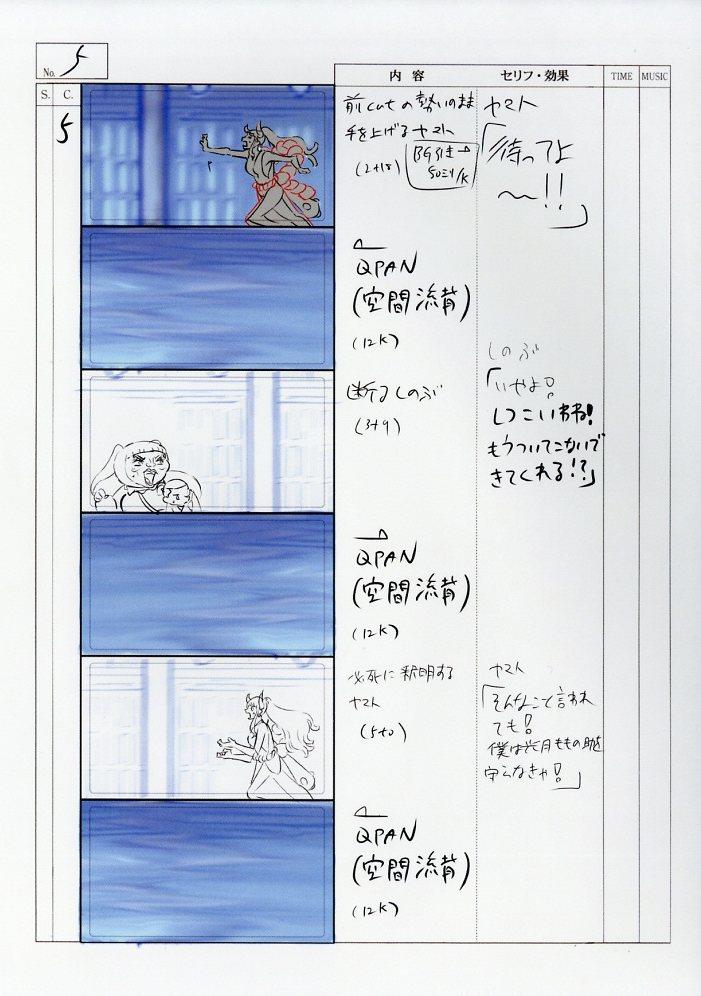 No. 5
S. C. 内容 セリフ・効果 TIME MUSIC
5
前cutの勢いのまま
手を上げるヤマト
(2+18)
BG引き→
50ミリ/K
ヤマト
「待ってよ
〜!!」
QPAN
(空間流背)
(12K)
断るしのぶ
(3+9)
しのぶ
「いやよ!
しつこいわね!
もうついてこないで
きてくれる!?」
QPAN
(空間流背)
(12K)
必死に釈明する
ヤマト
(5+0)
ヤマト
「そんなこと言われ
ても!
僕は光月モモの助を
守らなきゃ!」
QPAN
(空間流背)
(12K)